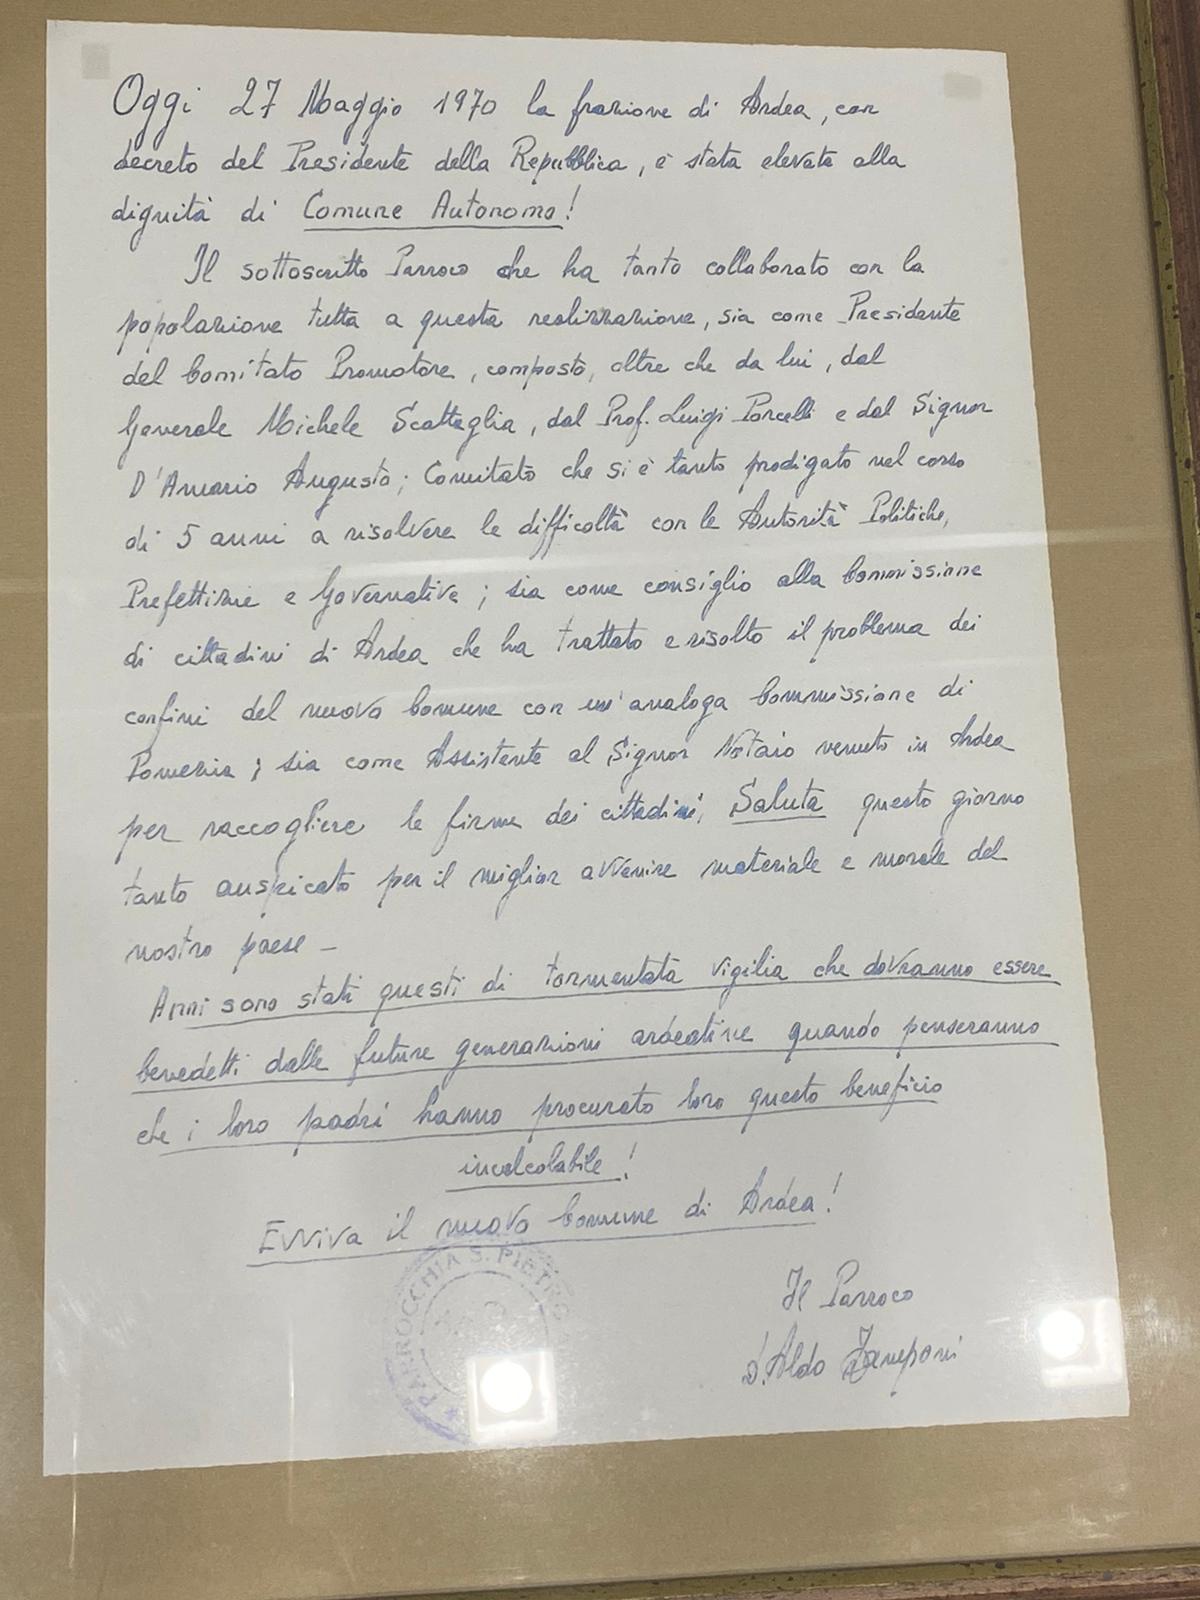 Oggi 27 Maggio 1970 la frazione di Ardea, con
decreto del Presidente della Repubblica, è stata elevata alla
dignità di Comune Autonomo!
Il sottoscritto Parroco che ha tanto collaborato con la
popolazione tutta a questa realizzazione, sia come Presidente
del Comitato Promotore, composto, oltre che da lui, dal
Generale Michele Scattaglia, dal Prof. Luigi Porcelli e dal Signor
D'Amario Augusto; Comitato che si è tanto prodigato nel corso
di 5 anni a risolvere le difficoltà con le Autorità Politiche,
Prefettizie e Governative; sia come consiglio alla Commissione
di cittadini di Ardea che ha trattato e risolto il problema dei
confini del nuovo Comune con un'analoga Commissione di
Pomezia; sia come Assistente al Signor Notaio venuto in Ardea
per raccogliere le firme dei cittadini; Saluta questo giorno
tanto auspicato per il miglior avvenire materiale e morale del
nostro paese –
Anni sono stati questi di tormentata vigilia che dovranno essere
benedetti dalle future generazioni ardeatine quando penseranno
che i loro padri hanno procurato loro questo beneficio
incalcolabile!
Evviva il nuovo Comune di Ardea!
PARROCCHIA S. PIETRO
Il Parroco
D. Aldo Zamponi